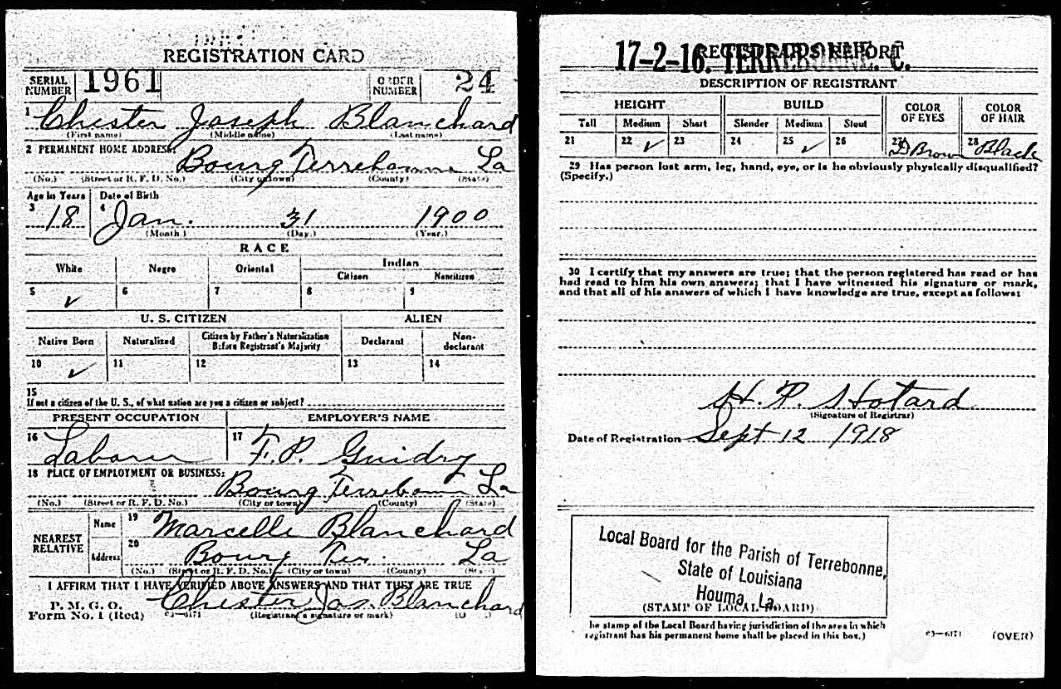 REGISTRATION CARD
SERIAL NUMBER 1961 ORDER NUMBER 24
1 Chester Joseph Blanchard
(First name) (Middle name) (Last name)
2 PERMANENT HOME ADDRESS: Bourg Terrebonne La
(No.) (Street or R. F. D. No.) (City or town) (County) (State)
Age in Years Date of Birth
3 18 4 Jan. 31 1900
(Month.) (Day.) (Year.)
RACE
White Negro Oriental Indian
Citizen Noncitizen
5 ✓ 6 7 8 9
U. S. CITIZEN ALIEN
Native Born Naturalized Citizen by Father's Naturalization Before Registrant's Majority Declarant Non-declarant
10 ✓ 11 12 13 14
15
If not a citizen of the U. S., of what nation are you a citizen or subject?
PRESENT OCCUPATION EMPLOYER'S NAME
16 Laborer 17 F. P. Guidry
18 PLACE OF EMPLOYMENT OR BUSINESS:
Bourg Terrebonne La
(No.) (Street or R. F. D. No.) (City or town) (County) (State)
NEAREST RELATIVE Name 19 Marcelle Blanchard
Address 20 Bourg Ter. La
(No.) (Street or R. F. D. No.) (City or town) (County) (State)
I AFFIRM THAT I HAVE VERIFIED ABOVE ANSWERS AND THAT THEY ARE TRUE
P. M. G. O.
Form No. 1 (Red) 03—6171 Chester Jos. Blanchard
(Registrant's signature or mark)
REGISTRAR'S REPORT
17-2-16. TERREBONNE. C.
DESCRIPTION OF REGISTRANT
HEIGHT BUILD COLOR OF EYES COLOR OF HAIR
Tall Medium Short Slender Medium Stout
21 22 ✓ 23 24 25 ✓ 26 27 D Brown 28 Black
29 Has person lost arm, leg, hand, eye, or is he obviously physically disqualified?
(Specify.)
30 I certify that my answers are true; that the person registered has read or has
had read to him his own answers; that I have witnessed his signature or mark,
and that all of his answers of which I have knowledge are true, except as follows:
H. P. Hotard
(Signature of Registrar)
Date of Registration Sept 12 1918
Local Board for the Parish of Terrebonne,
State of Louisiana
Houma, La.
(STAMP OF LOCAL BOARD)
he stamp of the Local Board having jurisdiction of the area in which
registrant has his permanent home shall be placed in this box.)
03—6171 (OVER)